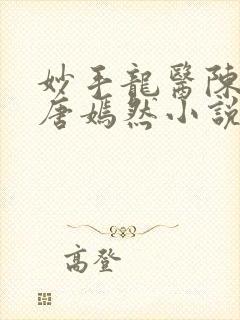 妙手龍醫陳
唐嫣然小說
高登